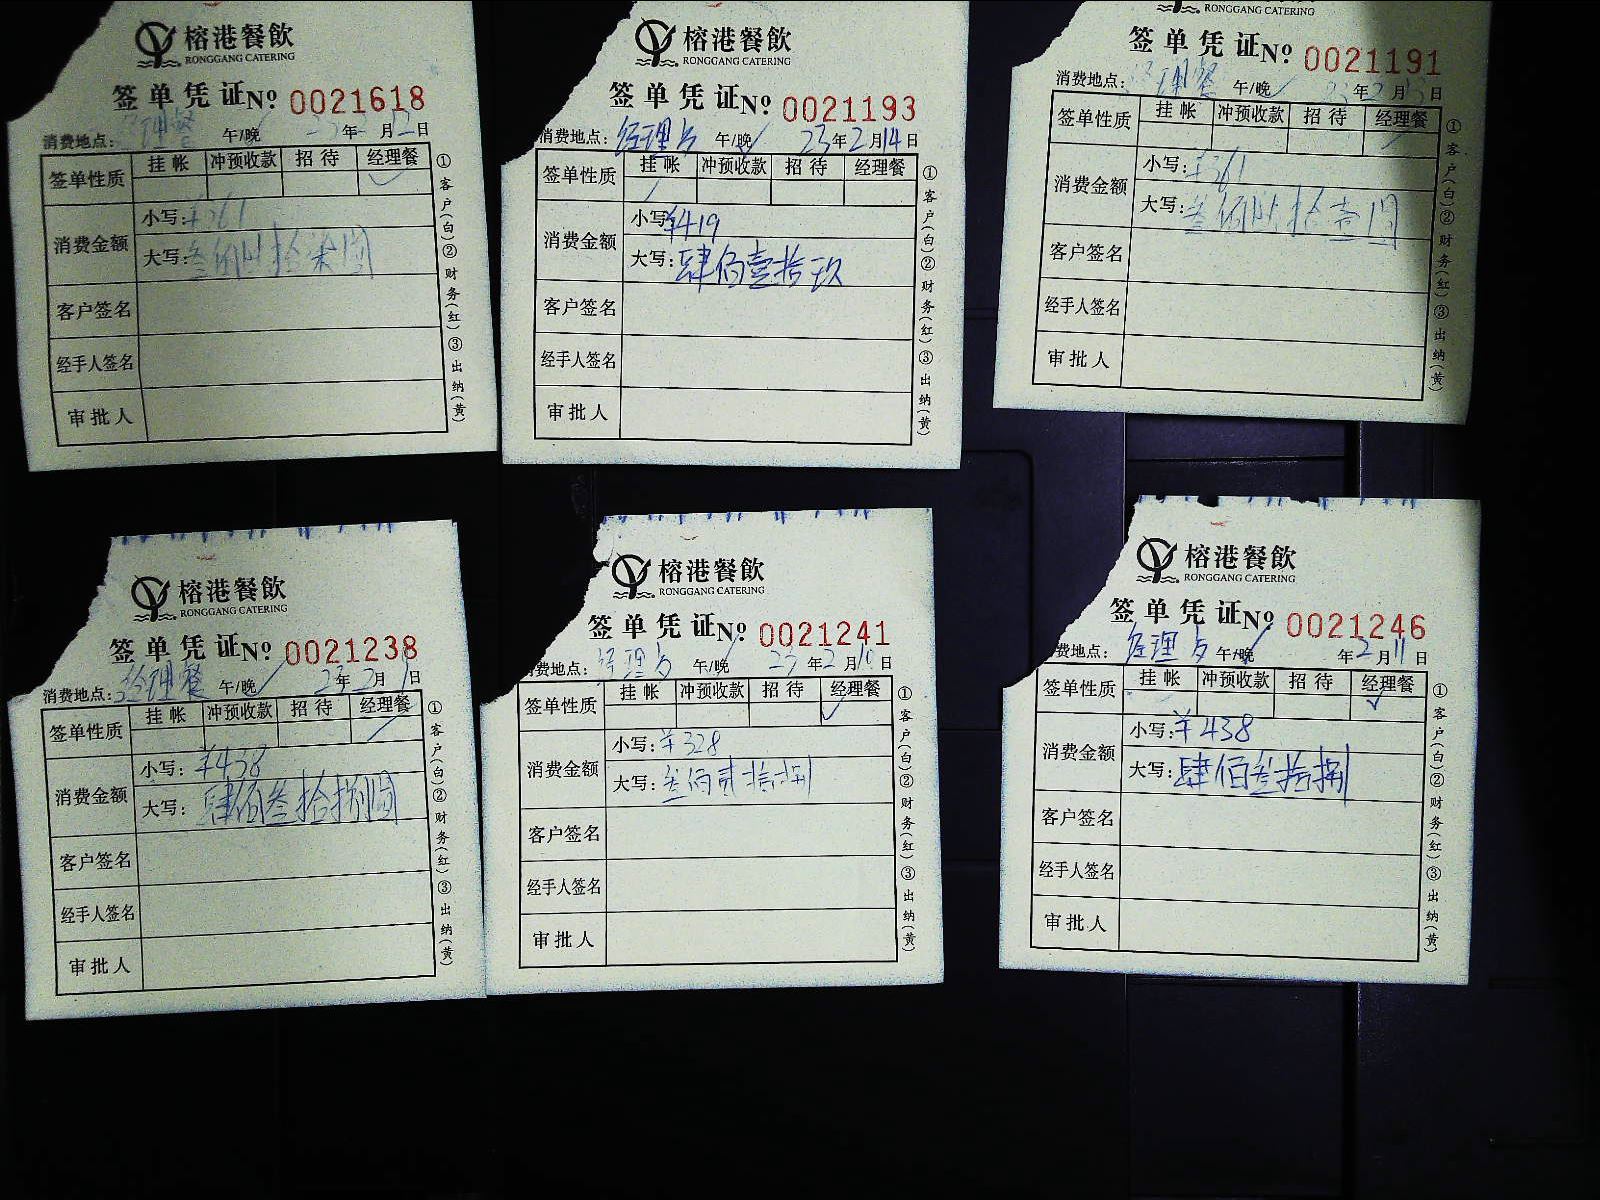 榕港餐飲
RONGGANG CATERING
签单凭证 № 0021618
消费地点： 经理餐 午/晚 23年 月12日
签单性质 挂帐 冲预收款 招待 经理餐
消费金额 小写：
大写：
客户签名
经手人签名
审批人
①客户(白)②财务(红)③出纳(黄)
榕港餐飲
RONGGANG CATERING
签单凭证 № 0021193
消费地点： 经理 午/晚 23年2月14日
签单性质 挂帐 冲预收款 招待 经理餐
消费金额 小写 ¥419
大写：肆佰壹拾玖
客户签名
经手人签名
审批人
①客户(白)②财务(红)③出纳(黄)
RONGGANG CATERING
签单凭证 № 0021191
消费地点： 经理餐 午/晚 23年2月13日
签单性质 挂帐 冲预收款 招待 经理餐
消费金额 小写：¥361
大写：叁佰陆拾壹圆
客户签名
经手人签名
审批人
①客户(白)②财务(红)③出纳(黄)
榕港餐飲
RONGGANG CATERING
签单凭证 № 0021238
消费地点： 经理餐 午/晚 23年2月 日
签单性质 挂帐 冲预收款 招待 经理餐
消费金额 小写：¥438
大写：肆佰叁拾捌圆
客户签名
经手人签名
审批人
①客户(白)②财务(红)③出纳(黄)
榕港餐飲
RONGGANG CATERING
签单凭证 № 0021241
费地点： 经理 午/晚 23年2月10日
签单性质 挂帐 冲预收款 招待 经理餐
消费金额 小写：¥328
大写：叁佰贰拾捌
客户签名
经手人签名
审批人
①客户(白)②财务(红)③出纳(黄)
榕港餐飲
RONGGANG CATERING
签单凭证 № 0021246
费地点： 经理 午/晚 年2月11日
签单性质 挂帐 冲预收款 招待 经理餐
消费金额 小写：¥438
大写：肆佰叁拾捌
客户签名
经手人签名
审批人
①客户(白)②财务(红)③出纳(黄)